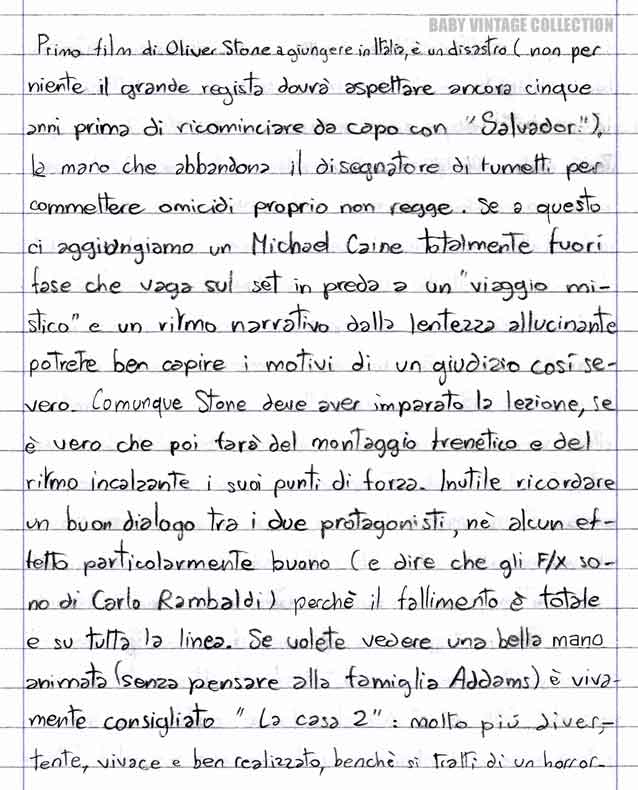 BABY VINTAGE COLLECTION
Primo film di Oliver Stone a giungere in Italia, è un disastro (non per
niente il grande regista dovrà aspettare ancora cinque
anni prima di ricominciare da capo con "Salvador").
la mano che abbandona il disegnatore di fumetti per
commettere omicidi proprio non regge. Se a questo
ci aggiungiamo un Michael Caine totalmente fuori
fase che vaga sul set in preda a un "viaggio mi-
stico" e un ritmo narrativo dalla lentezza allucinante
potrete ben capire i motivi di un giudizio così se-
vero. Comunque Stone deve aver imparato la lezione, se
è vero che poi farà del montaggio frenetico e del
ritmo incalzante i suoi punti di forza. Inutile ricordare
un buon dialogo tra i due protagonisti, nè alcun ef-
fetto particolarmente buono (e dire che gli F/X so-
no di Carlo Rambaldi) perchè il fallimento è totale
e su tutta la linea. Se volete vedere una bella mano
animata (senza pensare alla famiglia Addams) è viva-
mente consigliato "La casa 2": molto più diver-
tente, vivace e ben realizzato, benchè si tratti di un horror.